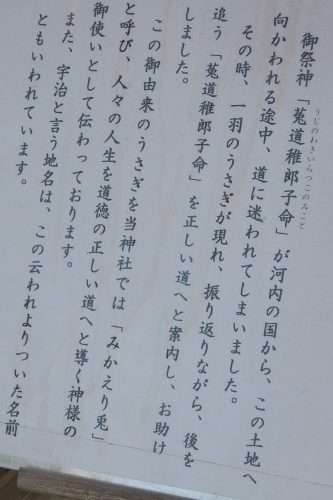 うじのわきいらつこのみこと
御祭神「菟道稚郎子命」が河内の国から、この土地へ
向かわれる途中、道に迷われてしまいました。
その時、一羽のうさぎが現れ、振り返りながら、後を
追う「菟道稚郎子命」を正しい道へと案内し、お助け
しました。
この御由来のうさぎを当神社では「みかえり兎」
と呼び、人々の人生を道徳の正しい道へと導く神様の
御使いとして伝わっております。
また、宇治と言う地名は、この云われよりついた名前
ともいわれています。